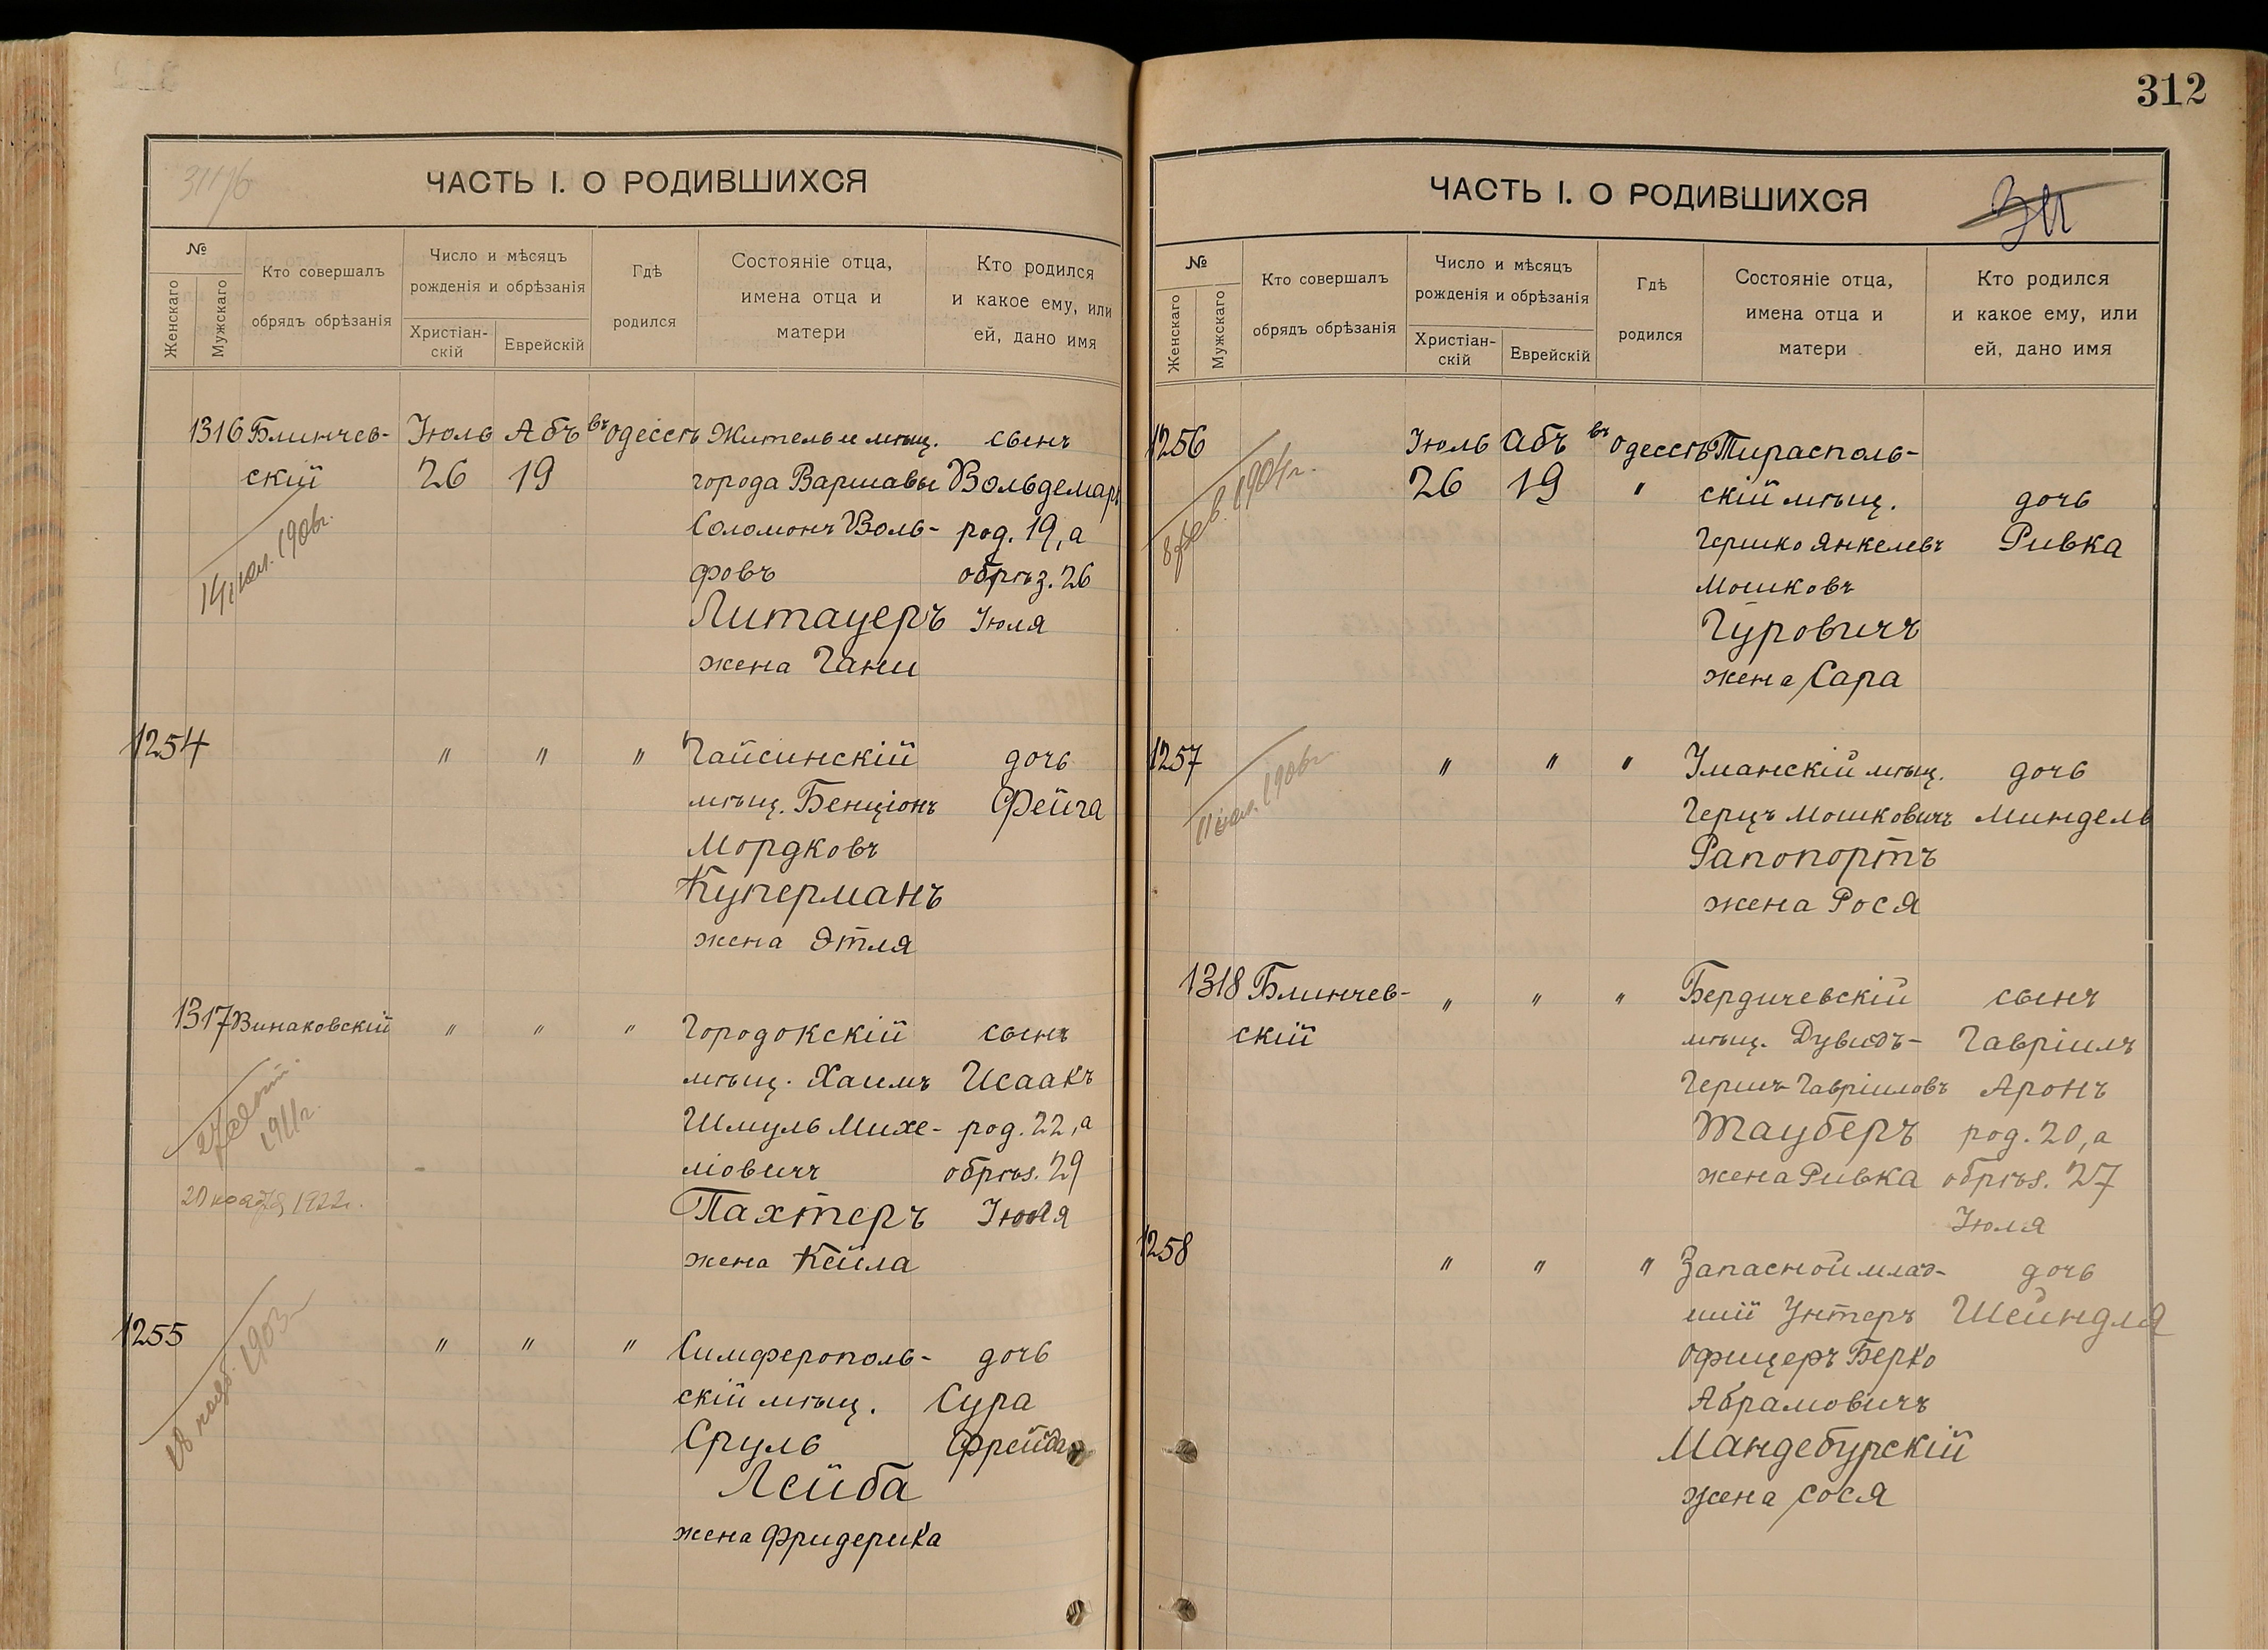 311/б
ЧАСТЬ I. О РОДИВШИХСЯ
№
Женскаго
Мужскаго
Кто совершалъ
обрядъ обрѣзанія
Число и мѣсяцъ
рожденія и обрѣзанія
Христіан-
скій
Еврейскій
Гдѣ
родился
Состояніе отца,
имена отца и
матери
Кто родился
и какое ему, или
ей, дано имя
1316 Блинчев- Іюль Абъ въ Одессѣ Житель и мѣщ. сынъ
скій 26 19 города Варшавы Вольдемаръ
Соломонъ Воль- род. 19, а
фовъ обрѣз. 26
Литауеръ Іюля
жена Гани
14 іюл. 1906г.
1254 " " " Гайсинскій дочь
мѣщ. Бенціонъ Фейга
Мордковъ
Куперманъ
жена Этля
1317 Винаковскій " " " Городокскій сынъ
мѣщ. Хаимъ Исаакъ
Шмуль Михе- род. 22, а
ліовичъ обрѣз. 29
Пахтеръ Іюля
жена Кейла
1911г.
1922г.
1255 " " " Симферополь- дочь
скій мѣщ. Сура
Сруль Фрейда
Лейба
жена Фридерика
18 нояб. 1903г
312
ЧАСТЬ I. О РОДИВШИХСЯ
311
№
Женскаго
Мужскаго
Кто совершалъ
обрядъ обрѣзанія
Число и мѣсяцъ
рожденія и обрѣзанія
Христіан-
скій
Еврейскій
Гдѣ
родился
Состояніе отца,
имена отца и
матери
Кто родился
и какое ему, или
ей, дано имя
1256 Іюль Абъ въ Одессѣ Тирасполь-
26 19 " скій мѣщ. дочь
Гершко Янкелевъ Ривка
Мошковъ
Гуровичъ
жена Сара
8 фев. 1904г.
1257 " " " Уманскій мѣщ. дочь
Герцъ Мошковичъ Миндель
Рапопортъ
жена Рося
11 іюл. 1906г
1318 Блинчев- " " " Бердичевскій сынъ
скій мѣщ. Дувидъ- Гавріилъ
Гершъ Гавріиловъ Аронъ
Тауберъ род. 20, а
жена Ривка обрѣз. 27
Іюля
1258 " " " Запасной млад- дочь
шій Унтеръ Шейндля
Офицеръ Берко
Абрамовичъ
Мандебурскій
жена Сося